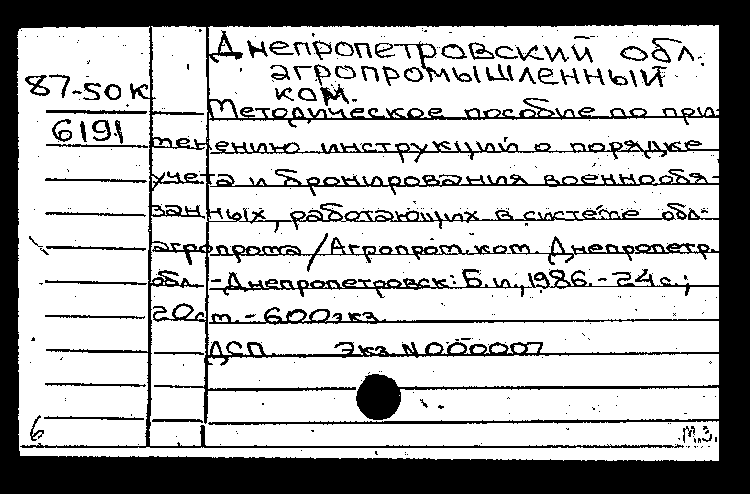 Днепропетровский обл.
агропромышленный
ком.
87-50К
6191
Методическое пособие по при-
менению инструкций о порядке
учета и бронирования военнообя-
занных, работающих в системе обл-
агропрома / Агропром. ком. Днепропетр.
обл. - Днепропетровск: Б.и., 1986. - 24 с.;
20см. - 600экз.
ДСП. Экз. N 000007
6
М.З.